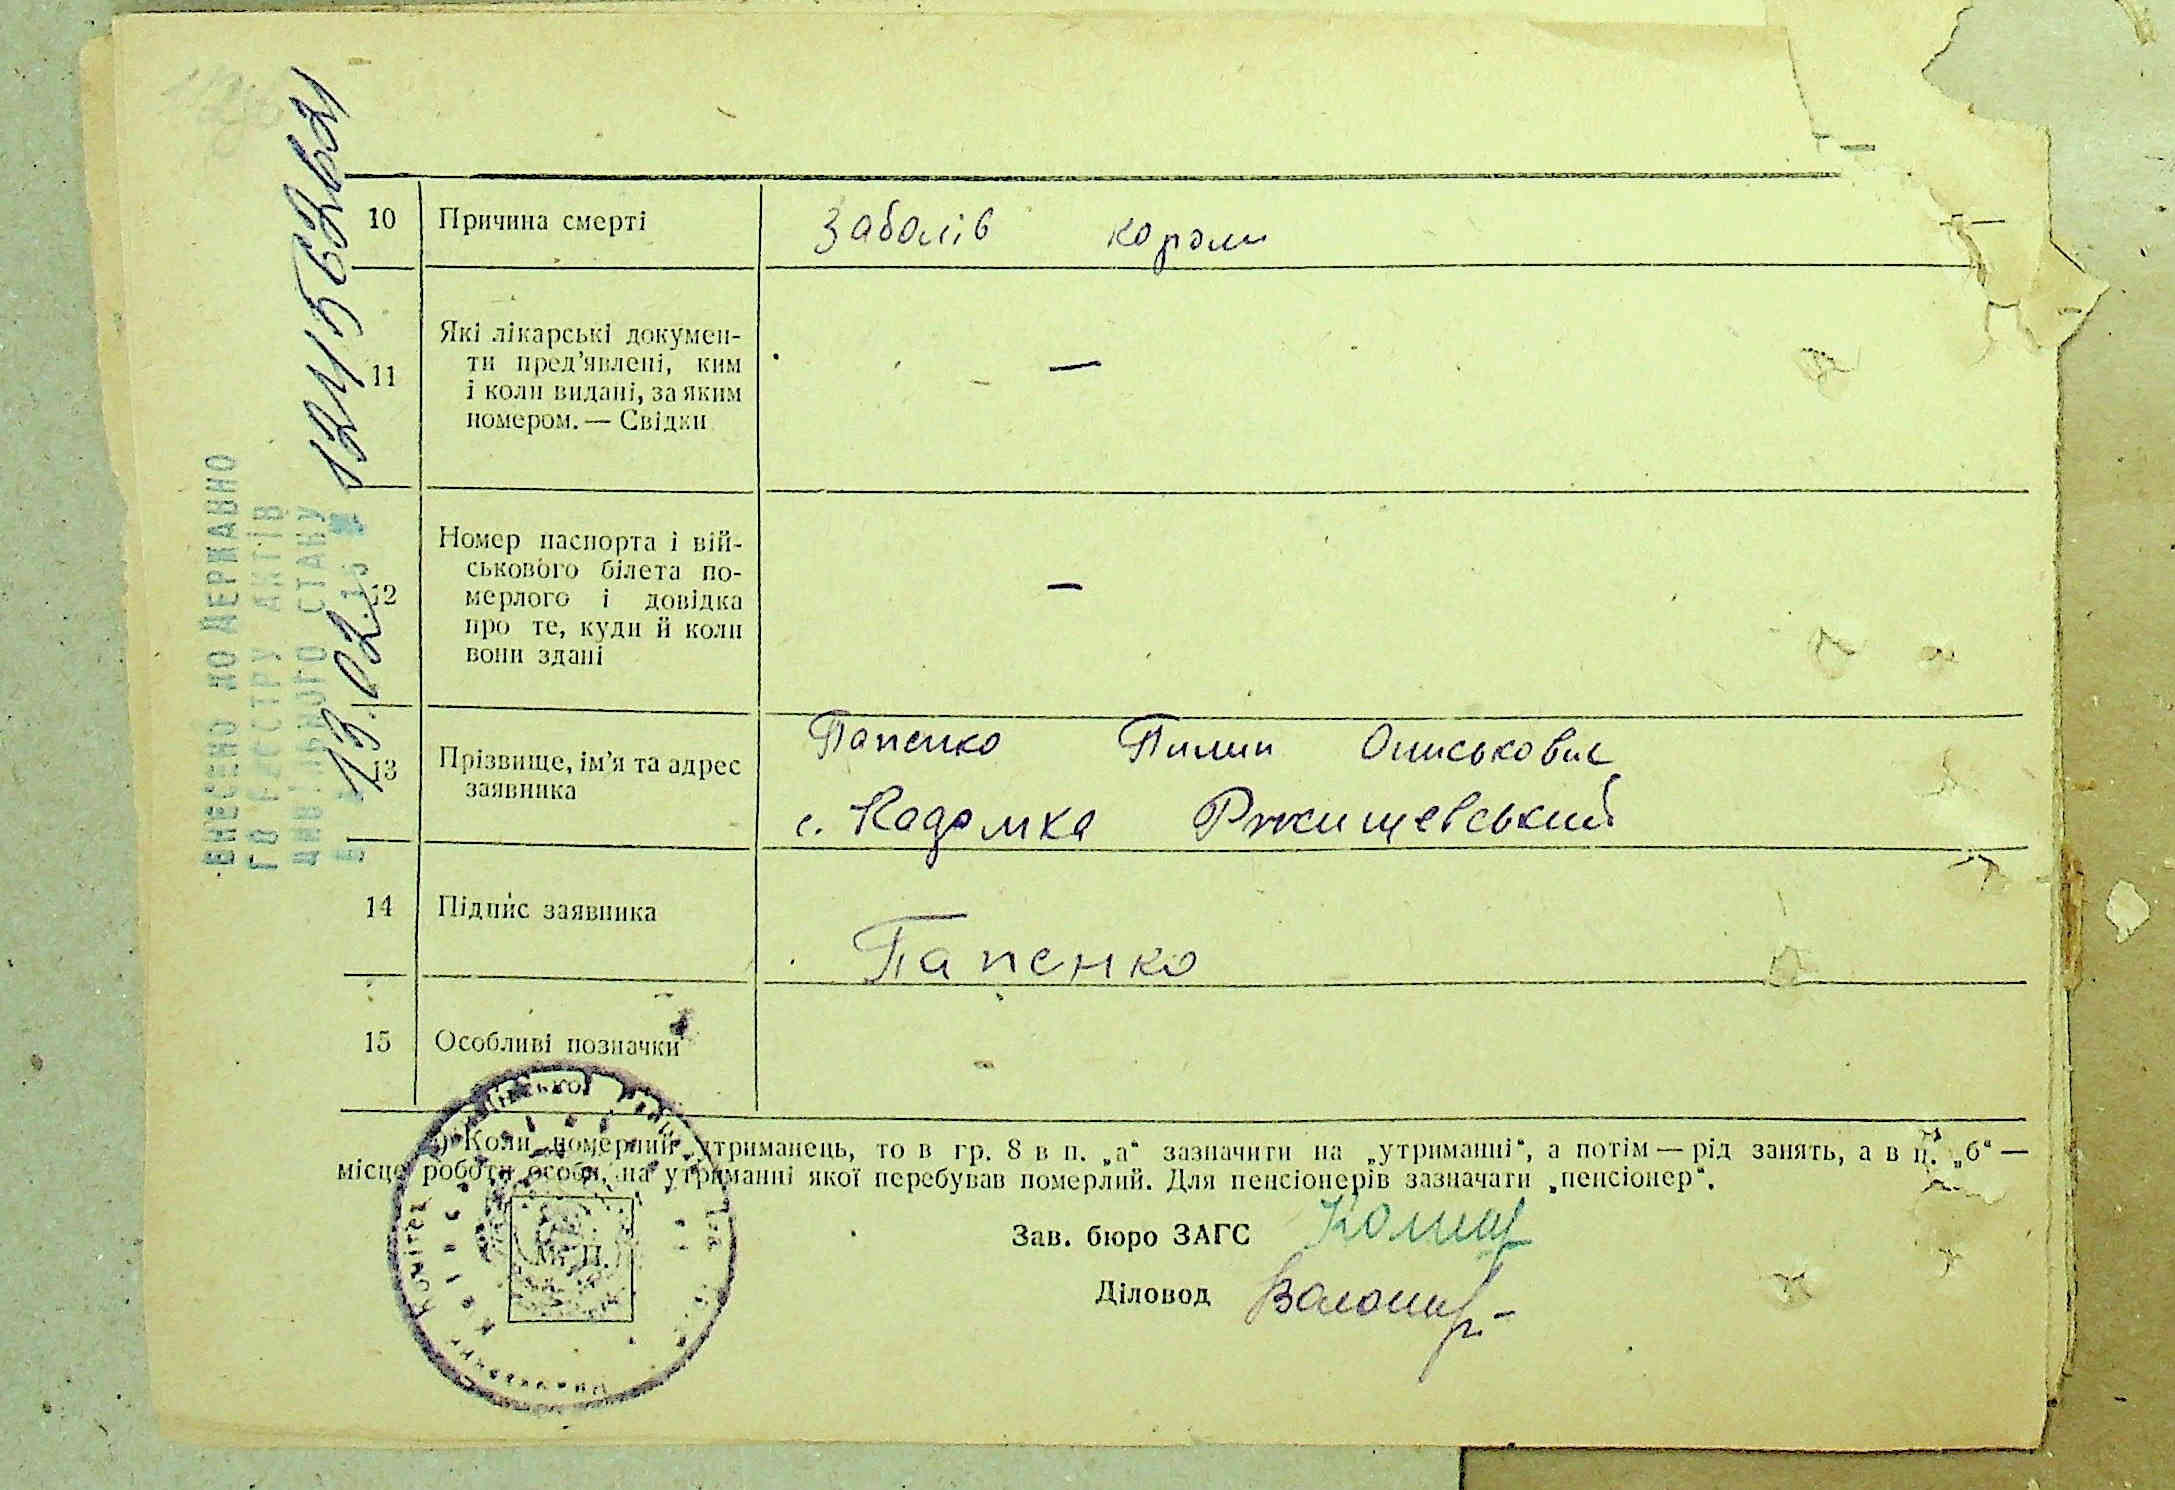 10 Причина смерті Заболів корами
11 Які лікарські докумен-
ти пред’явлені, ким
і коли видані, за яким
номером. — Свідки —
12 Номер паспорта і вій-
ськового білета по-
мерлого і довідка
про те, куди й коли
вони здані —
13 Прізвище, ім’я та адрес
заявника
Папенко Пилип Ониськович
с. Кадомка Ржищевський
14 Підпис заявника Папенко
15 Особливі позначки
Коли померлий утриманець, то в гр. 8 в п. „а“ зазначити на „утриманні“, а потім — рід занять, а в п. „б“ —
місце роботи особи, на утриманні якої перебував померлий. Для пенсіонерів зазначати „пенсіонер“.
Зав. бюро ЗАГС
Діловод
М. П.
ВНЕСЕНО ДО ДЕРЖАВНО
ГО РЕЄСТРУ АКТІВ
ЦИВІЛЬНОГО СТАНУ
13.02